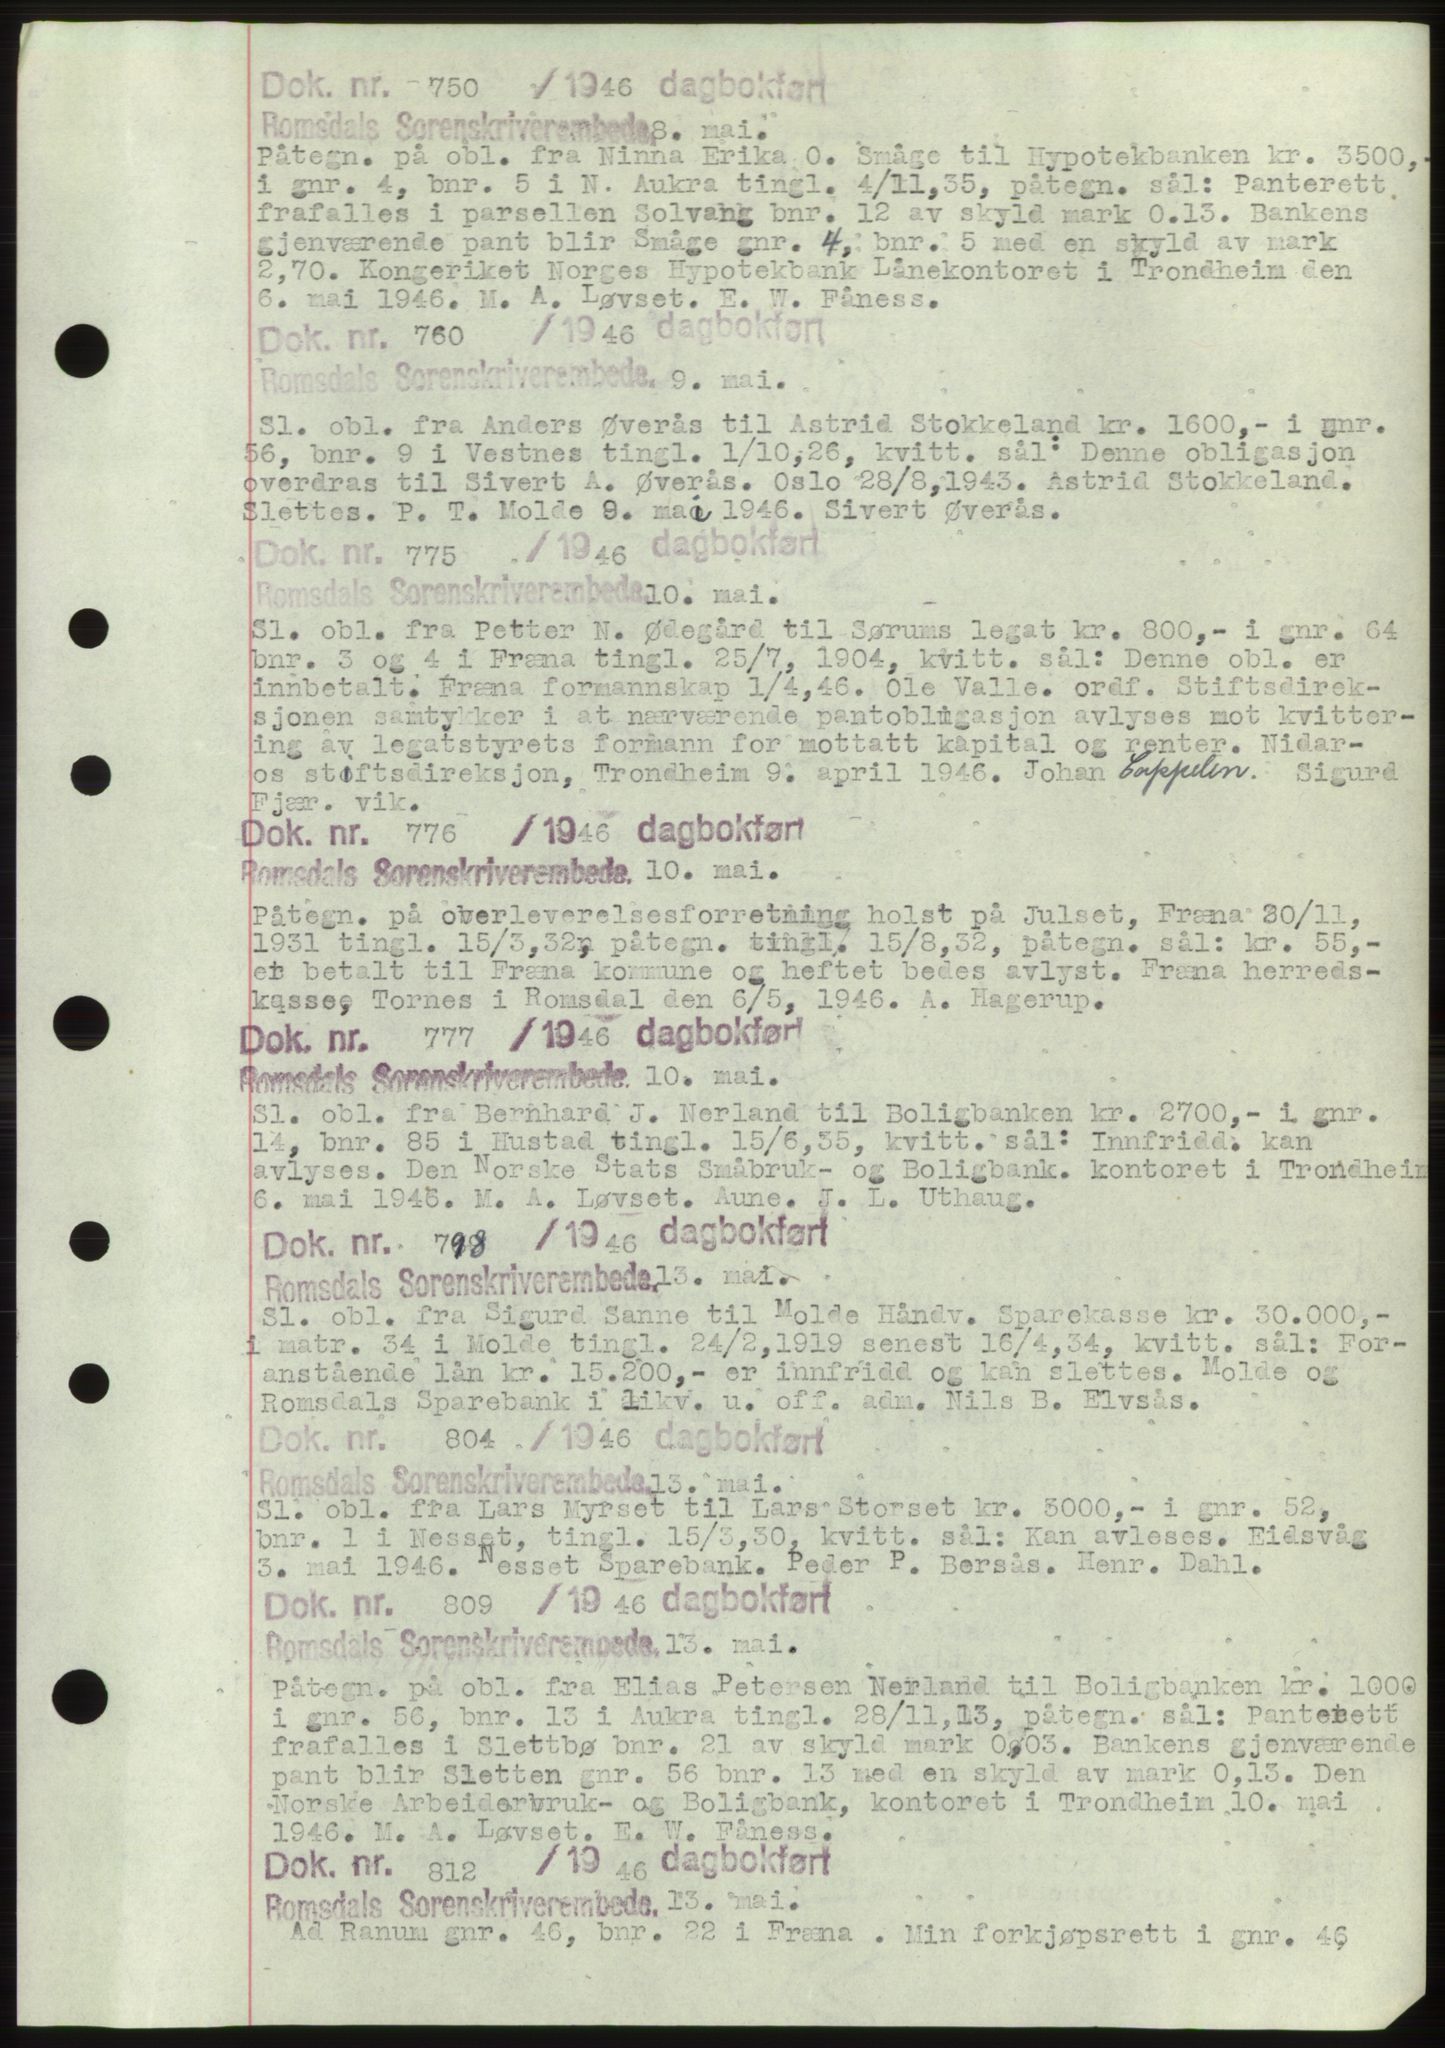 Dok. nr. 750 / 1946 dagbokført
Romsdals Sorenskriverembede, 8. mai.
Påtegn. på obl. fra Ninna Erika O. Småge til Hypotekbanken kr. 3500,-
i gnr. 4, bnr. 5 i N. Aukra tingl. 4/11,35, påtegn. sål: Panterett
frafalles i parsellen Solvang bnr. 12 av skyld mark 0.13. Bankens
gjenværende pant blir Småge gnr. 4, bnr. 5 med en skyld av mark
2,70. Kongeriket Norges Hypotekbank Lånekontoret i Trondheim den
6. mai 1946. M. A. Løvset. E. W. Fåness.
Dok. nr. 760 / 1946 dagbokført
Romsdals Sorenskriverembede. 9. mai.
Sl. obl. fra Anders Øverås til Astrid Stokkeland kr. 1600,- i gnr.
56, bnr. 9 i Vestnes tingl. 1/10,26, kvitt. sål: Denne obligasjon
overdras til Sivert A. Øverås. Oslo 28/8,1943. Astrid Stokkeland.
Slettes. P. T. Molde 9. mai 1946. Sivert Øverås.
Dok. nr. 775 / 1946 dagbokført
Romsdals Sorenskriverembede. 10. mai.
Sl. obl. fra Petter N. Ødegård til Sørums legat kr. 800,- i gnr. 64
bnr. 3 og 4 i Fræna tingl. 25/7, 1904, kvitt. sål: Denne obl. er
innbetalt. Fræna formannskap 1/4,46. Ole Valle. ordf. Stiftsdirek-
sjonen samtykker i at nærværende pantobligasjon avlyses mot kvitter-
ing av legatstyrets formann for mottatt kapital og renter. Nidar-
os stiftsdireksjon, Trondheim 9. april 1946. Johan Cappelen. Sigurd
Fjær. vik.
Dok. nr. 776 / 1946 dagbokført
Romsdals Sorenskriverembede. 10. mai.
Påtegn. på overleverelsesforretning holst på Julset, Fræna 30/11,
1931 tingl. 15/3,32, påtegn. tingl. 15/8,32, påtegn. sål: kr. 55,-
er betalt til Fræna kommune og heftet bedes avlyst. Fræna herreds-
kasse, Tornes i Romsdal den 6/5, 1946. A. Hagerup.
Dok. nr. 777 / 1946 dagbokført
Romsdals Sorenskriverembede. 10. mai.
Sl. obl. fra Bernhard J. Nerland til Boligbanken kr. 2700,- i gnr.
14, bnr. 85 i Hustad tingl. 15/6,35, kvitt. sål: Innfridd. kan
avlyses. Den Norske Stats Småbruk- og Boligbank. kontoret i Trondheim
6. mai 1946. M. A. Løvset. Aune. J. L. Uthaug.
Dok. nr. 798 / 1946 dagbokført
Romsdals Sorenskriverembede. 13. mai.
Sl. obl. fra Sigurd Sanne til Molde Håndv. Sparekasse kr. 30.000,-
i matr. 34 i Molde tingl. 24/2,1919 senest 16/4,34, kvitt. sål: For-
anstående lån kr. 15.200,- er innfridd og kan slettes. Molde og
Romsdals Sparebank i likv. u. off. adm. Nils B. Elvsås.
Dok. nr. 804 / 1946 dagbokført
Romsdals Sorenskriverembede. 13. mai.
Sl. obl. fra Lars Myrset til Lars Storset kr. 3000,- i gnr. 52,
bnr. 1 i Nesset, tingl. 15/3,30, kvitt. sål: Kan avleses. Eidsvåg
3. mai 1946. Nesset Sparebank. Peder P. Bersås. Henr. Dahl.
Dok. nr. 809 / 1946 dagbokført
Romsdals Sorenskriverembede. 13. mai.
Påtegn. på obl. fra Elias Petersen Nerland til Boligbanken kr. 1000
i gnr. 56, bnr. 13 i Aukra tingl. 28/11,13, påtegn. sål: Panterett
frafalles i Slettbø bnr. 21 av skyld mark 0,03. Bankens gjenværende
pant blir Sletten gnr. 56 bnr. 13 med en skyld av mark 0,13. Den
Norske Arbeiderbruk- og Boligbank, kontoret i Trondheim 10. mai
1946. M. A. Løvset. E. W. Fåness.
Dok. nr. 812 / 1946 dagbokført
Romsdals Sorenskriverembede. 13. mai.
Ad Ranum gnr. 46, bnr. 22 i Fræna . Min forkjøpsrett i gnr. 46